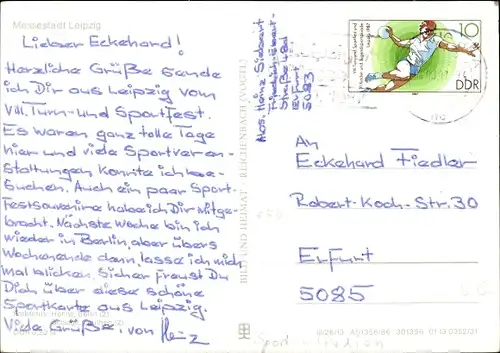 Messestadt Leipzig
Lieber Eckehard!
Herzliche Grüße sende
ich Dir aus Leipzig vom
VIII. Turn- und Sportfest.
Es waren ganz tolle Tage
hier und viele Sportveran-
staltungen konnte ich be-
suchen. Auch ein paar Sport-
festsouvenire habe ich Dir mitge-
bracht. Nächste Woche bin ich
wieder in Berlin, aber übers
Wochenende dann, lasse ich mich
mal blicken. Sicher freust Du
Dich über diese schöne
Sportkarte aus Leipzig.
Viele Grüße, von Heinz
Abs. Heinz Siebert
Erfurt
5083
BILD UND HEIMAT REICHENBACH (VOGTL)
10
DDR
An
Eckehard Fiedler
Robert-Koch-Str. 30
Erfurt
5085